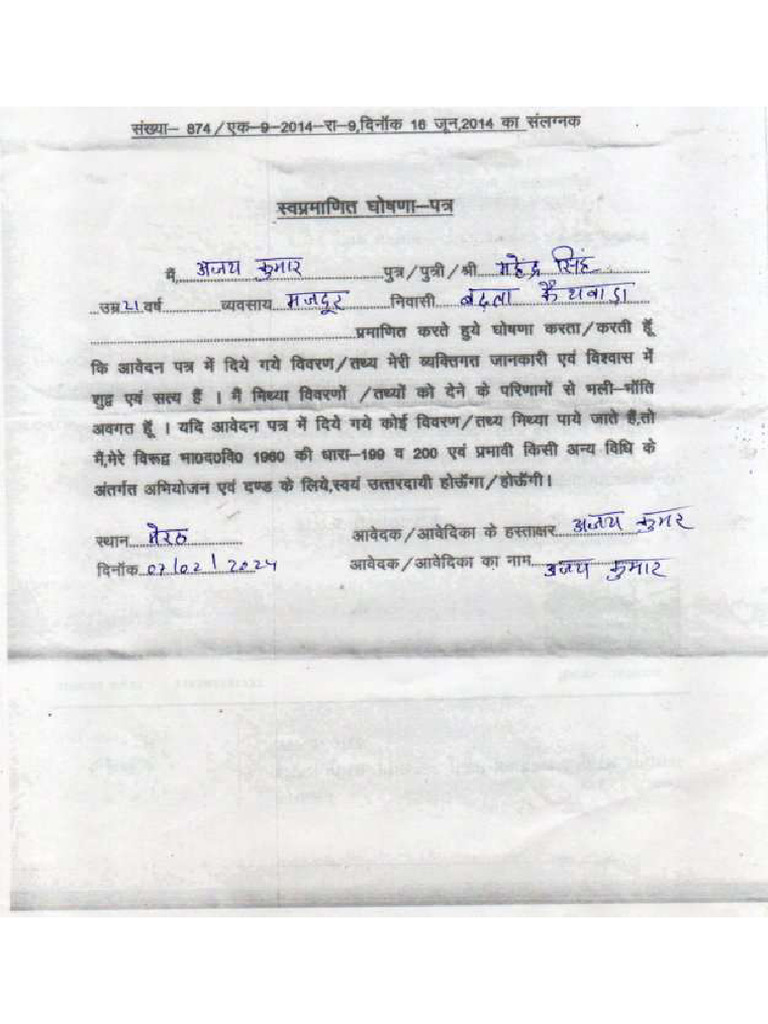 संख्या- 874/एक-9-2014-रा-9,दिनाँक 16 जून,2014 का संलग्नक
स्वप्रमाणित घोषणा-पत्र
मैं, अजय कुमार पुत्र/पुत्री/श्री महेन्द्र सिंह
उम्र 21 वर्ष व्यवसाय मजदूर निवासी बदला कैथवाडा
प्रमाणित करते हुये घोषणा करता/करती हूँ
कि आवेदन पत्र में दिये गये विवरण/तथ्य मेरी व्यक्तिगत जानकारी एवं विश्वास में
शुद्व एवं सत्य हैं । मैं मिथ्या विवरणों /तथ्यों को देने के परिणामों से भली-भाँति
अवगत हूँ । यदि आवेदन पत्र में दिये गये कोई विवरण/तथ्य मिथ्या पाये जाते हैं,तो
मैं,मेरे विरूद्व भा0द0वि0 1960 की धारा-199 व 200 एवं प्रभावी किसी अन्य विधि के
अंतर्गत अभियोजन एवं दण्ड के लिये,स्वयं उत्तरदायी होऊँगा/होऊँगी।
स्थान मेरठ आवेदक/आवेदिका के हस्ताक्षर अजय कुमार
दिनाँक 07/02/2024 आवेदक/आवेदिका का नाम अजय कुमार